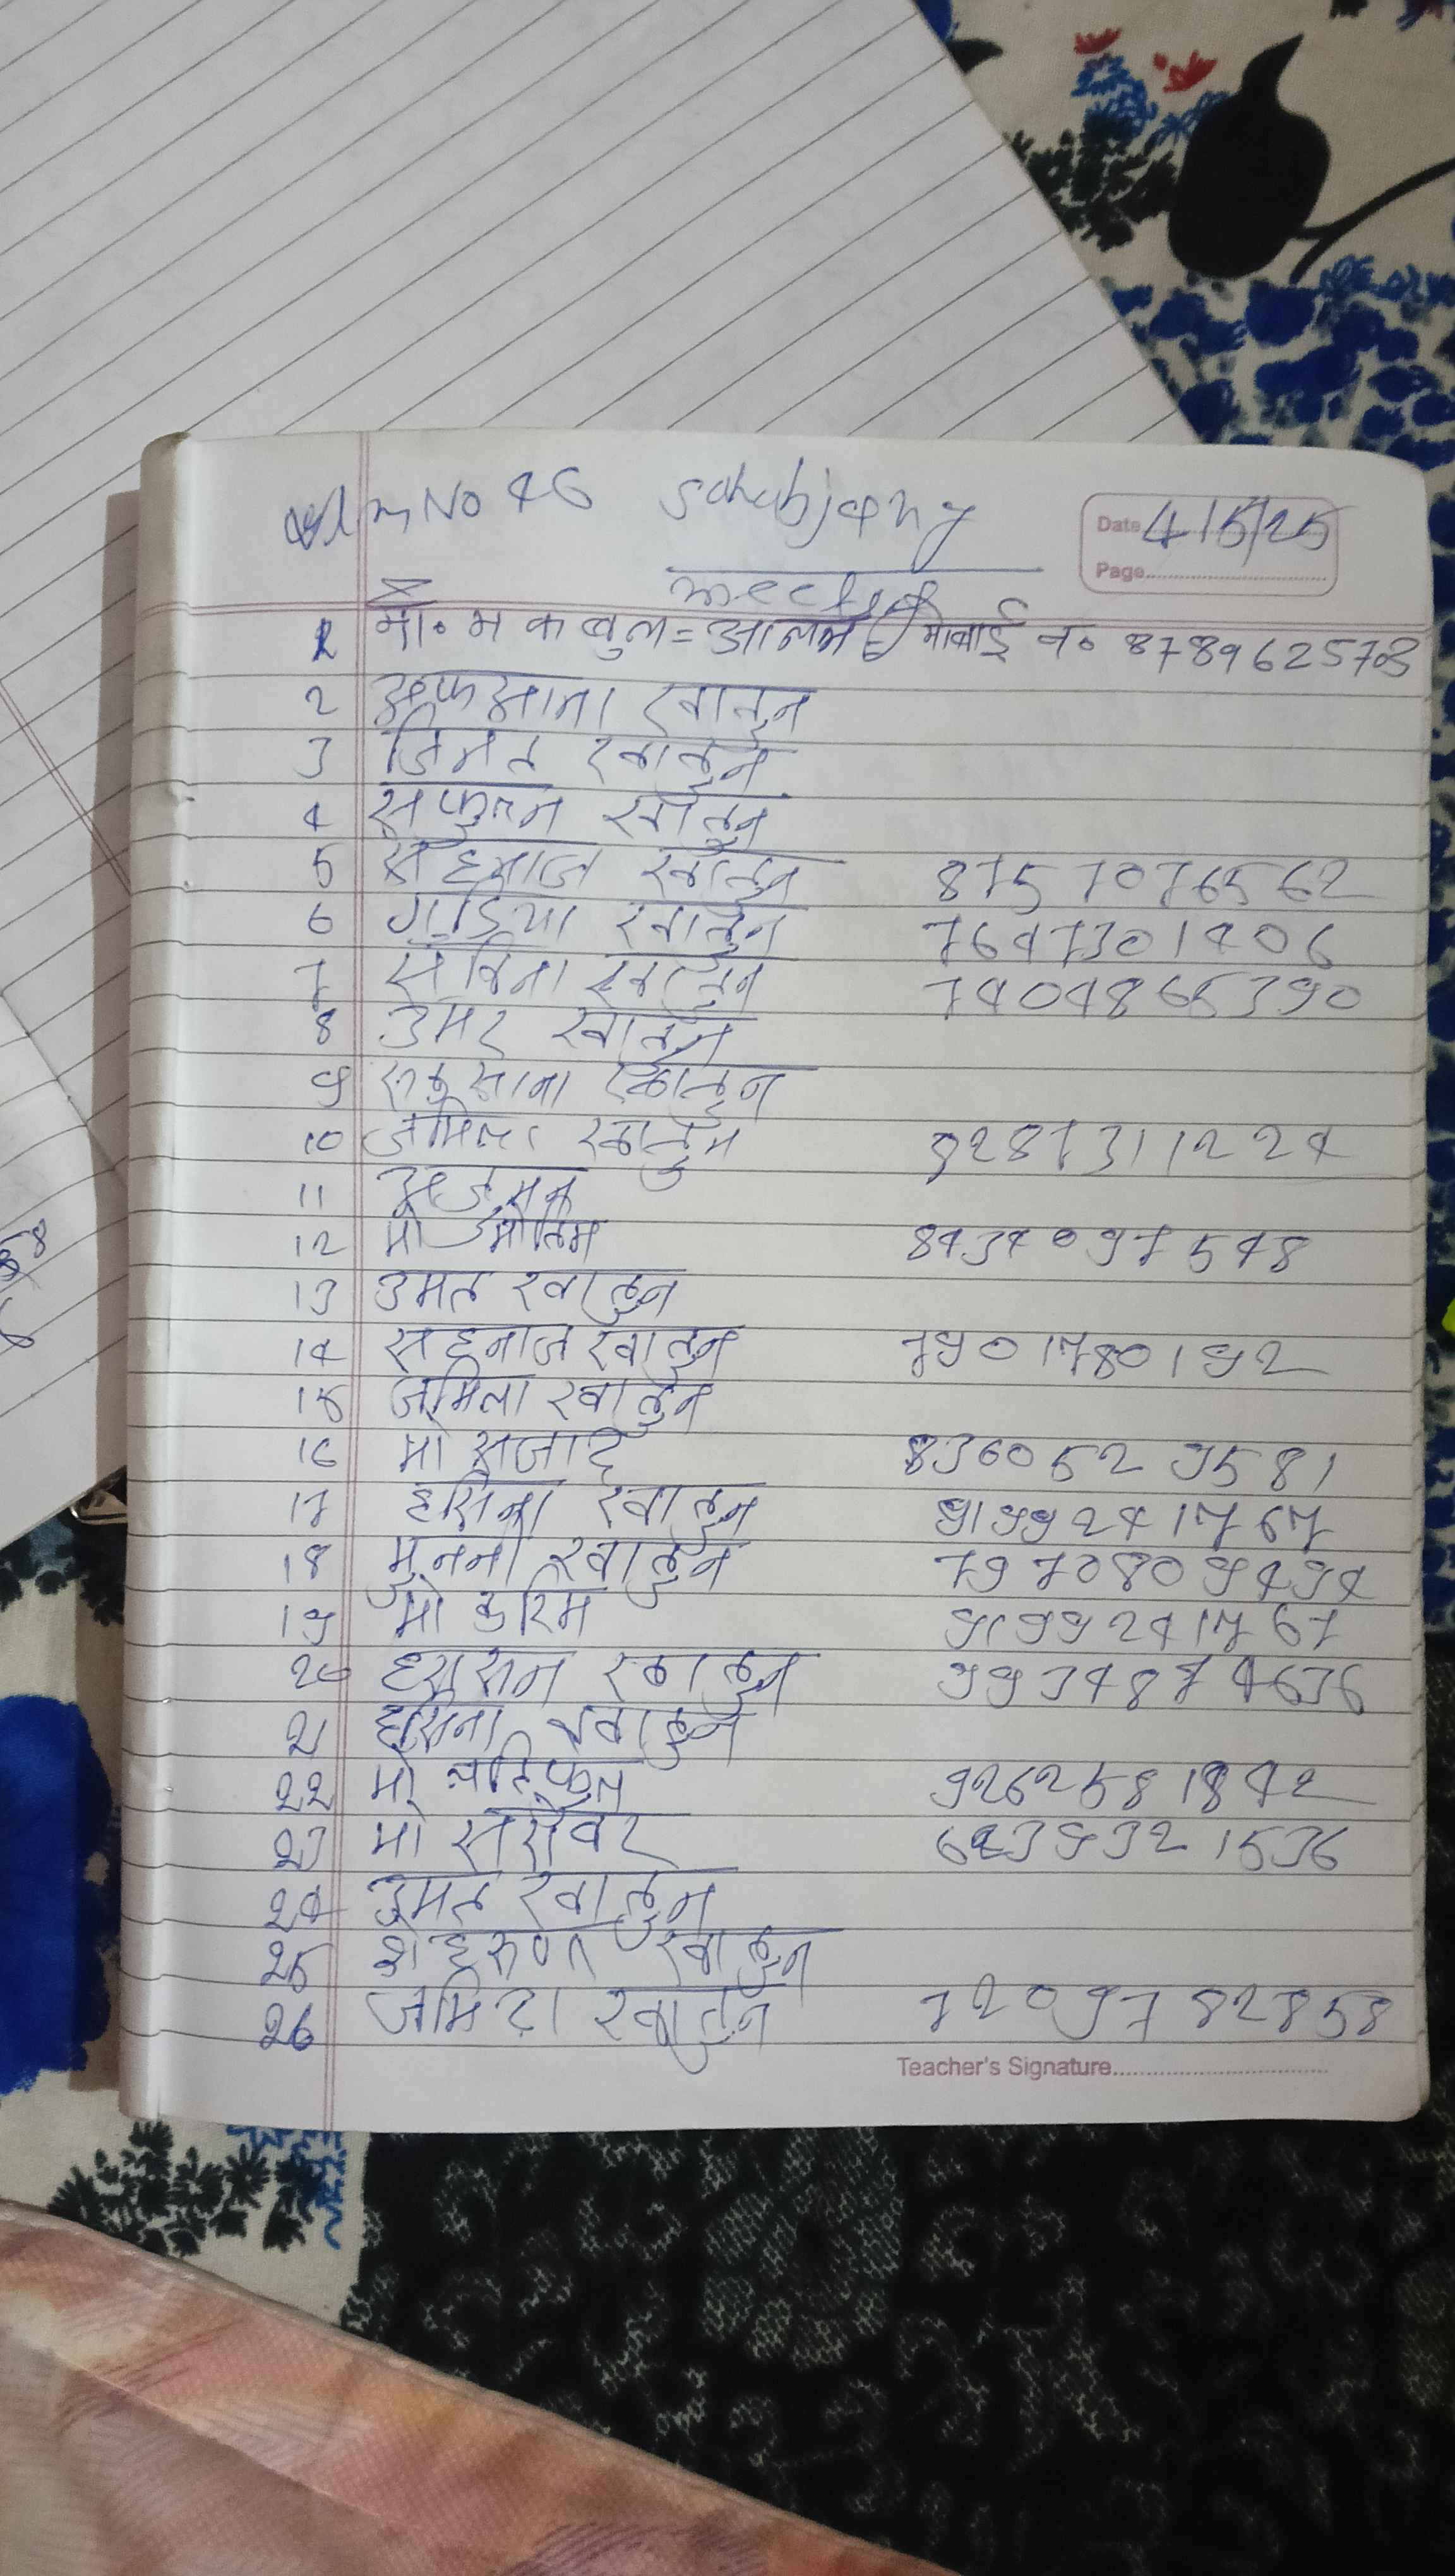 No 46 Sahabjang
Date 4/5/25
Page
meeting
1 मो॰ मकबुल = आलम मोबाई न॰ 8789625703
2 अफसाना खातुन
3 जिनत खातुन
4 खातुन
5 सहनाज खातुन 8757076562
6 गुडिया खातुन 7647301406
7 सबिना खातुन 7404865390
8 उमर खातुन
9 रुकसाना खातुन
10 जमिला खातुन 9287311224
11
12 मो 8434097548
13 उमत खातुन
14 सहनाज खातुन 7901780192
15 जमिला खातुन
16 मो सजाद 8360529581
17 हसिना खातुन 9199241767
18 मुननी खातुन 7970809494
19 मो करिम 9199241767
20 खातुन 9934874636
21 हसिना खातुन
22 मो 9262581842
23 मो सरोवर 6239321536
24 उमत खातुन
25 खातुन
26 जमिदा खातुन 7209782858
Teacher's Signature